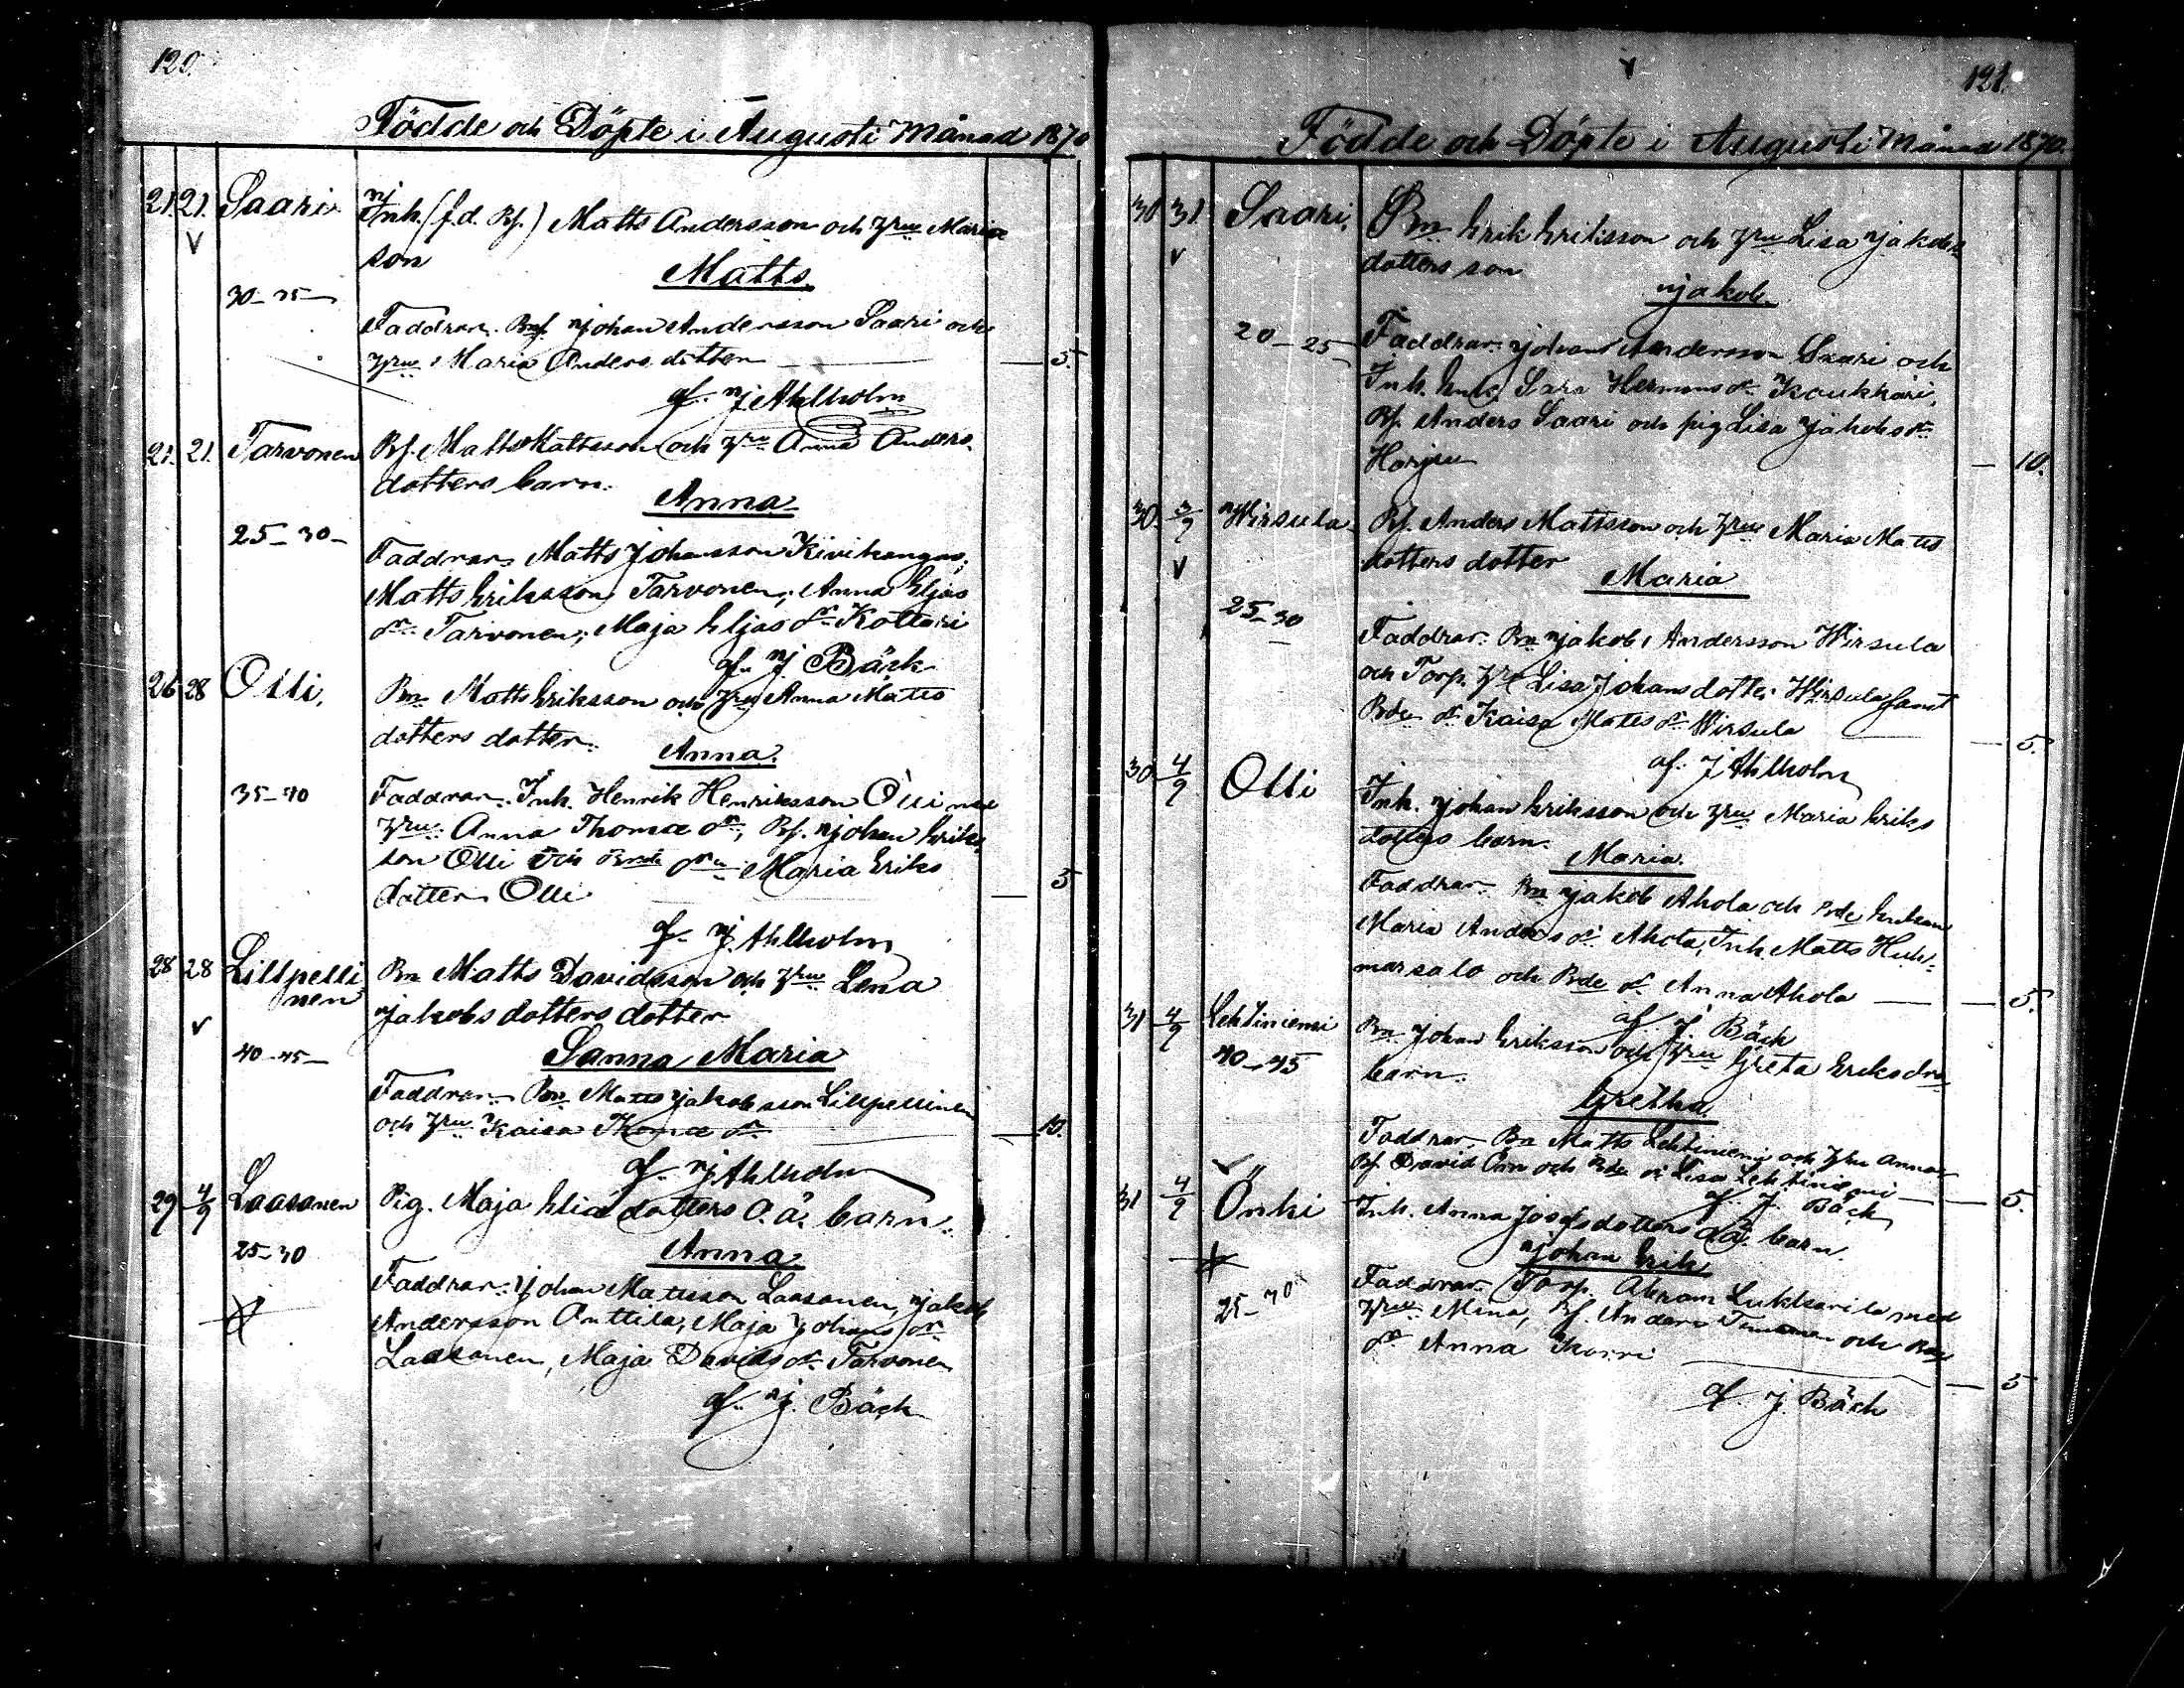 120.
Födde och Döpte i Augusti Månad 1870
21. 21. Saari Inh. (f.d. Bf.) Matts Andersson och hru Maria
son
Matts.
30-35
Faddrar. Johan Andersson Saari och
hru Maria Anders dotter — 5.
af. J. Ahlholm
21. 21. Tarvonen Bf. Matts Mattsson och hru Anna Anders
dotters barn.
Anna
25-30-
Faddrar. Matts Johansson Kivikangas,
Matts Eriksson Tarvonen, Anna Eljas
dr. Tarvonen, Maja Eljas dr Kottari
af J Bäck
26 28 Olli. Bn Matts Eriksson och hru Anna Matts
dotters dotter.
Anna.
35-40 Faddrar. Inh. Henrik Henriksson Olli med
hru Anna Thomæ dr, Bf. Johan Eriks
son Olli och Bnde dr Maria Eriks
dotter Olli — 5
af J. Ahlholm
28 28 Lillpelli
nen Bn Matts Davidsson och hru Lena
Jakobs dotters dotter
Sanna Maria
40-45-
Faddrar. Bn Matts Jakobsson Lillpellinen
och hru Kaisa Thomæ dr — 10.
af J Ahlholm
29 4/9 Laasanen Pig. Maja Elia dotters o.ä. barn.
Anna
25-30
Faddrar: Johan Mattsson Laasanen, Jakob
Andersson Anttila, Maja Johans dr
Laasanen, Maja Davids dr Tarvonen
af J. Bäck
121.
Födde och Döpte i Augusti Månad 1870.
30 31 Saari. Bn Erik Eriksson och hru Lisa Jakobs
dotters son
Jakob.
20-25 Faddrar. Johan Andersson Saari och
Inh. Enk. Sara Hermans dr Kaukkari,
Bf. Anders Saari och pig Lisa Jakobs dr
Harju — 10.
30. 3/9 Wirsula Bf. Anders Mattsson och hru Maria Matts
dotters dotter
Maria
25-30
Faddrar. Bn Jakob Andersson Wirsula
och Torp. hru Lisa Johans dotter Wirsula samt
Bde dr Kaisa Matts dr Wirsula — 5.
af. J Ahlholm
30 4/9 Olli Inh. Johan Eriksson och hru Maria Eriks
dotters barn.
Maria.
Faddrar. Bn Jakob Ahola och Bde Enkan
Maria Anders dr Ahola, Inh Matts Huh-
marsalo och Bde dr Anna Ahola — 5.
af J. Bäck
31 4/9 Lehtiniemi Bn Johan Eriksson och hru Greta Eriksdrs
40-45 barn.
Gretha
Faddrar. Bn Matts Lehtiniemi och hru Anna
Bf. David och Bde dr Lisa Lehtiniemi — 5.
af J. Bäck
31 4/9 Önki Inh. Anna Josefs dotters o.ä. barn.
Johan Erik
25-30 Faddrar. Torp. Abram Lukkarila med
hru Mina, Bf. Anders och
dr Anna — 5
af J. Bäck